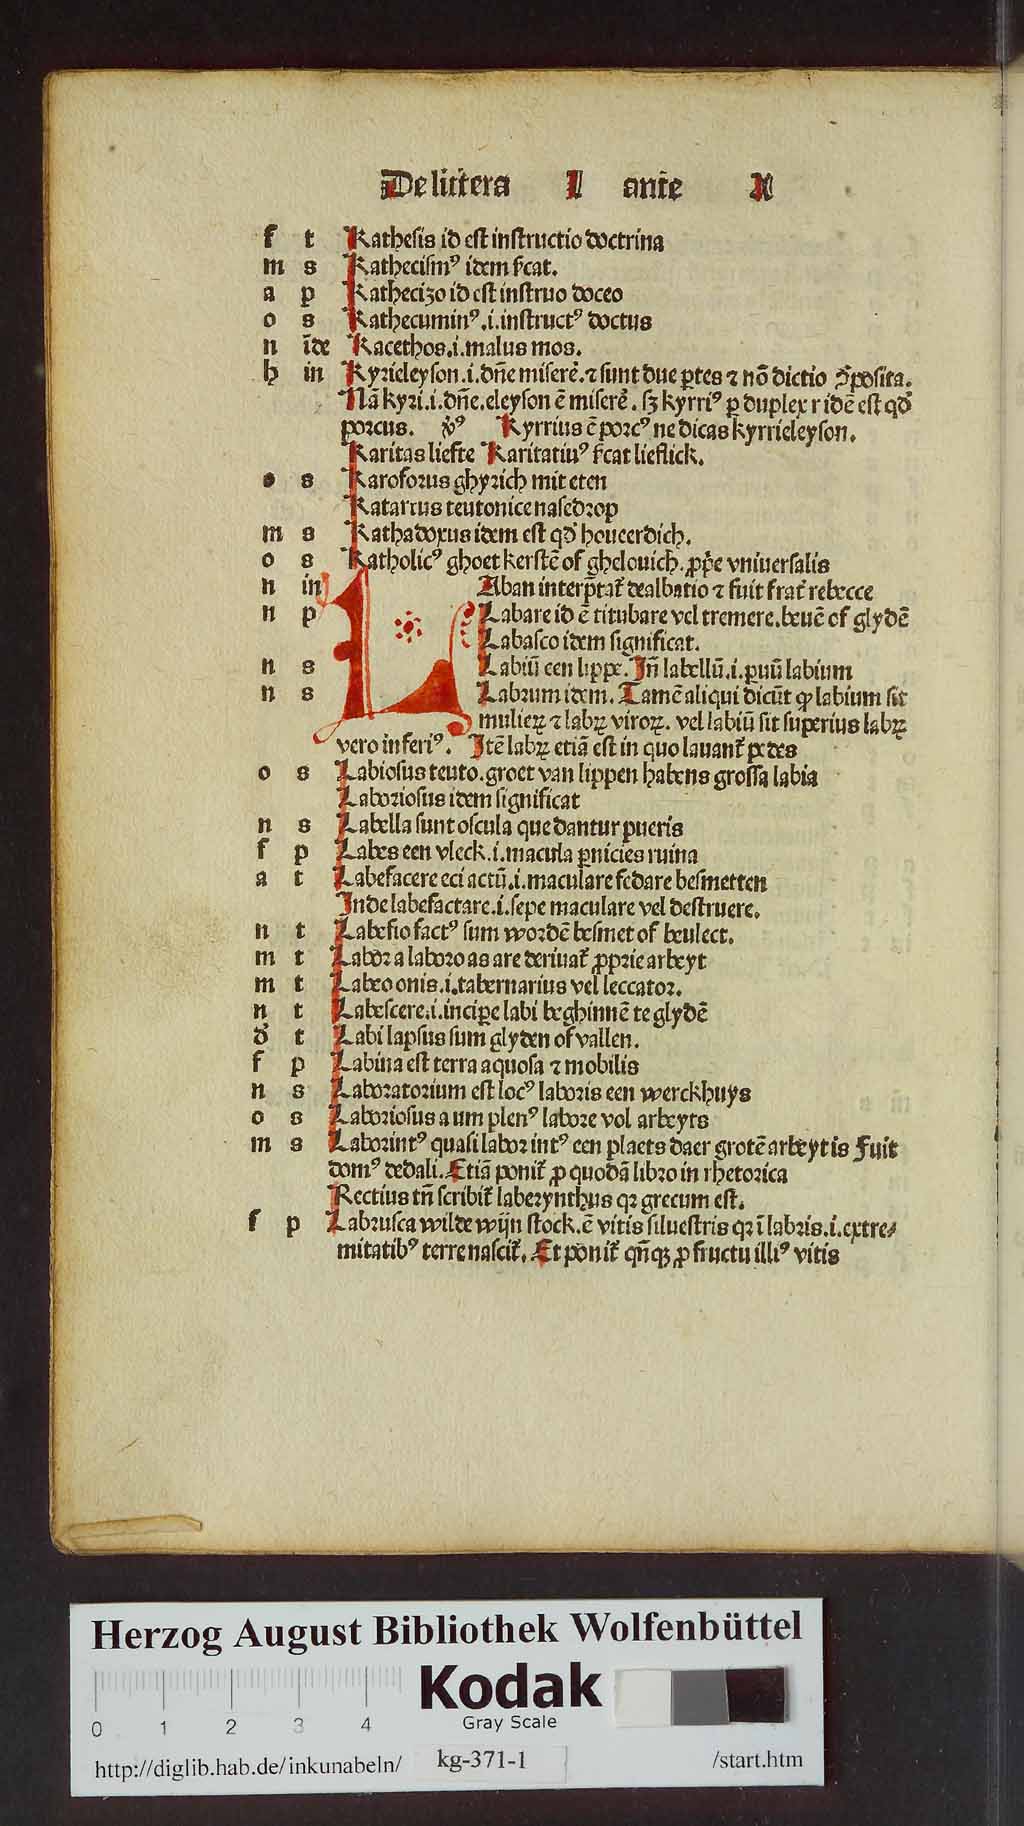 De littera I ante N
f t Kathesis id est instructio doctrina
m s Kathecismꝰ idem s̄cat.
a p Kathecizo id est instruo doceo
o s Kathecuminꝰ .i. instructꝰ doctus
n idē Kacethos .i. malus mos.
h in Kyrieleyson .i. dn̄e miserē. ⁊ sunt due ꝑtes ⁊ nō dictio ꝯposita.
Nā kyri .i. dn̄e. eleyson ē miserē. sꝫ kyrriꝰ ꝑ duplex r idē est qd̄
porcus. v̄ꝰ Kyrrius ē porcꝰ ne dicas kyrrieleyson.
Karitas liefte Karitatiuꝰ s̄cat lieflick.
o s Karoforus ghyrich mit eten
Katarrus teutonice nasedrop
m s Kathadoxus idem est qd̄ houeerdich.
o s Katholicꝰ ghoet kerstē of ghelouich. ꝓp̄e vniuersalis
n in LAban interp̄tat̄ dealbatio ⁊ fuit frat̄ rebecce
n p Labare id ē titubare vel tremere. beuē of glydē
Labasco idem significat.
n s Labiū een lippe. Jn̄ labellū .i. ꝑuū labium
n s Labrum idem. Tamē aliqui dicūt ꝙ labium sit
mulieꝝ ⁊ labꝝ viroꝝ. vel labiū sit superius labꝝ
vero inferiꝰ. Jtē labꝝ etiā est in quo lauant̄ pedes
o s Labiosus teuto. groet van lippen habens grossa labia
Laboriosus idem significat
n s Labella sunt oscula que dantur pueris
f p Labes een vleck .i. macula ꝑnicies ruina
a t Labefacere eci actū .i. maculare fedare besmetten
Jnde labefactare .i. sepe maculare vel destruere.
n t Labefio factꝰ sum wordē besmet of beulect.
m t Labor a laboro as are deriuat̄ ꝓprie arbeyt
m t Labeo onis .i. tabernarius vel leccator.
n t Labescere .i. inciꝑe labi beghinnē te glydē
d̄ t Labi lapsus sum glyden of vallen.
f p Labina est terra aquosa ⁊ mobilis
n s Laboratorium est locꝰ laboris een werckhuys
o s Laboriosus a um plenꝰ labore vol arbeyts
m s Laborintꝰ quasi labor intꝰ een plaets daer grotē arbeyt is Fuit
domꝰ dedali. Etiā ponit̄ ꝓ quodā libro in rhetorica
Rectius tn̄ scribit̄ laberynthus qꝛ grecum est.
f p Labrusca wilde wijn stock. ē vitis siluestris qꝛ ī labris .i. extre⸗
mitatibꝰ terre nascit̄. Et ponit̄ qn̄qꝫ ꝓ fructu illiꝰ vitis
Herzog August Bibliothek Wolfenbüttel
0 1 2 3 4 Kodak
Gray Scale
http://diglib.hab.de/inkunabeln/ kg-371-1 /start.htm